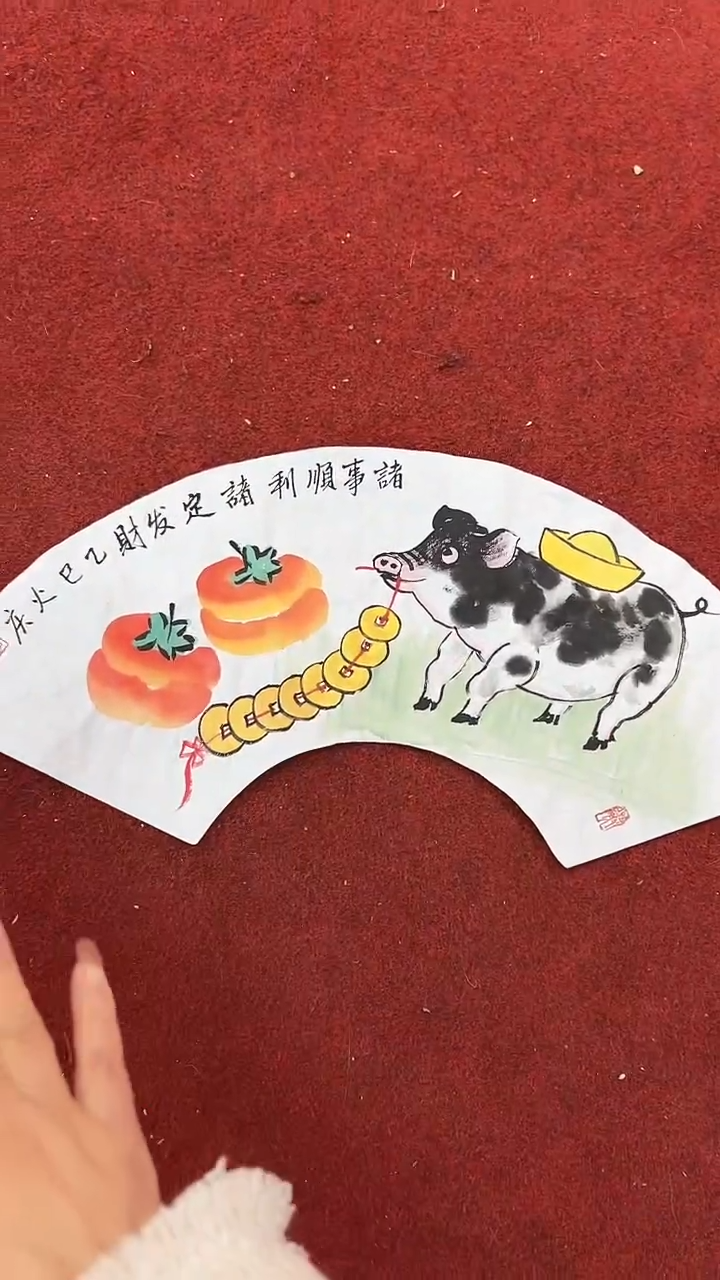 諸事順利諸定发財乙巳火庆